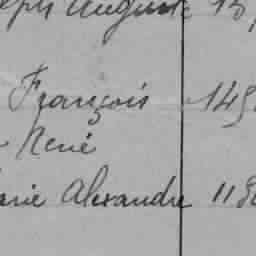 Auguste 13
François 145
René
Alexandre 118